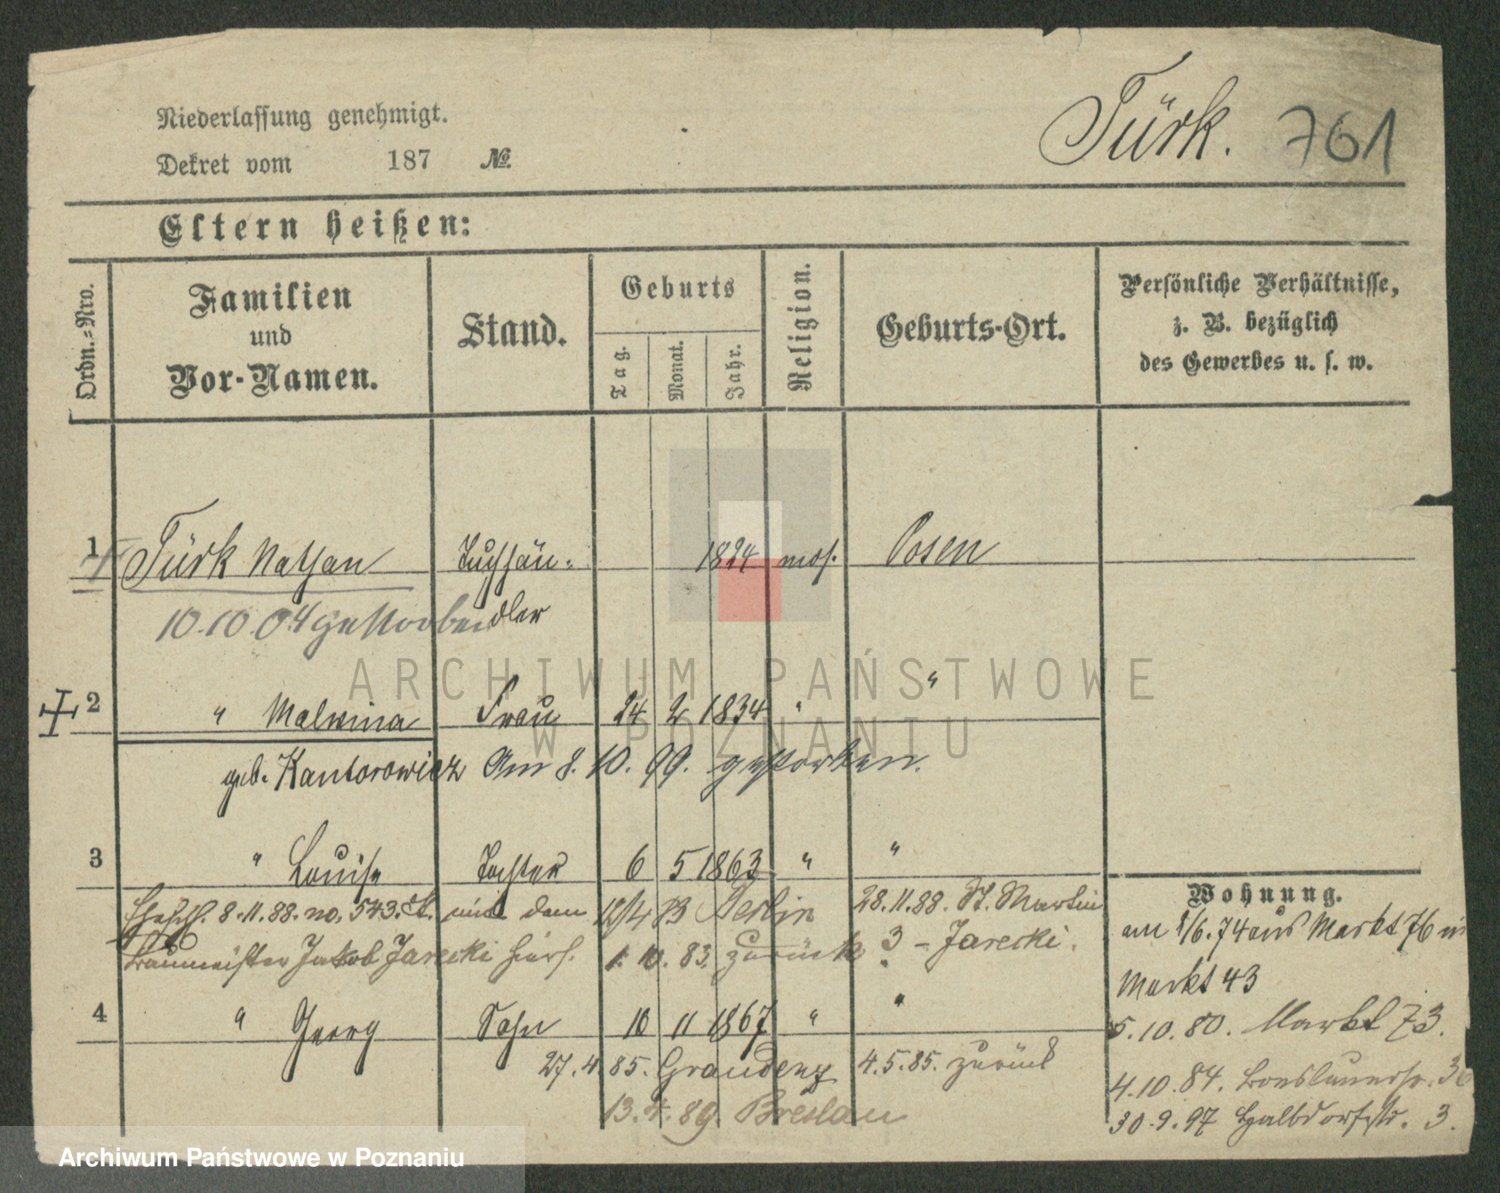 Niederlassung genehmigt.
Dekret vom 187 №
Türk. 761
Eltern heißen:
Ordn.-Nro.
Familien
und
Vor-Namen.
Stand.
Geburts
Tag.
Monat.
Jahr.
Religion.
Geburts-Ort.
Persönliche Verhältnisse,
z. B. bezüglich
des Gewerbes u. s. w.
1 Türk Nathan Tuchhän- 1824 mos. Posen
10.10.04 gestorben dler
2 " Malwina Frau 24 2 1834 " "
geb. Kantorowicz Am 8. 10. 99. gestorben.
3 " Louise Tochter 6 5 1863 " "
Eheschl. 8.11.88. no. 543. St. mit dem Berlin 28.11.88. St. Martin
Baumeister Jakob Jarecki hiers. 1. 10. 83. zurück 3 - Jarecki.
4 " Georg Sohn 10 11 1867 " "
27.4.85. Graudenz 4.5.85. zurück
13.4.89. Breslau
Wohnung.
am 1/6.74 aus Markt 76 in
Markt 43
5.10.80. Markt 73.
4.10.84. Breslauerstr. 36
30.9.97 Halbdorfstr. 3.
ARCHIWUM PAŃSTWOWE
W POZNANIU
Archiwum Państwowe w Poznaniu